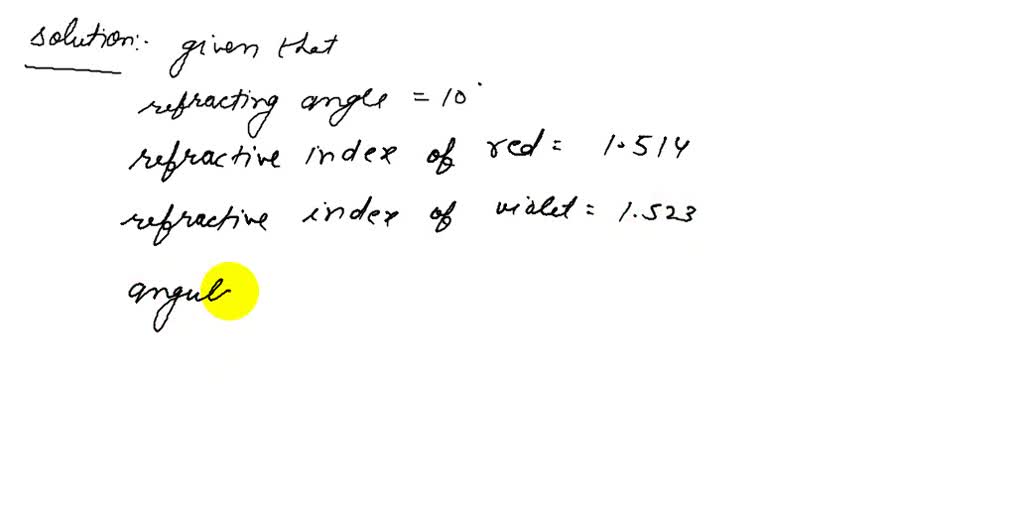 solution:-
given that
refracting angle = 10°
refractive index of red = 1.514
refractive index of vialet = 1.523
angul